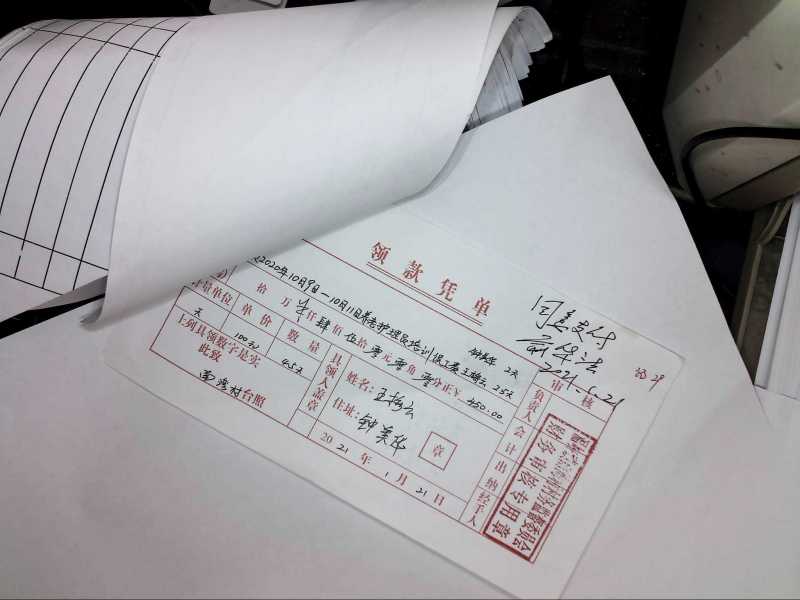 领款凭单
2020年10月9日—10月11日养老护理员培训保工友王梅云 2.5天
钟美华 2天
拾万 仟肆佰伍拾零元零角零分正￥450.00
计量单位 单价 数量
天 100元 4.5天
上列具领数字是实
此致
南湾村台照
具领人盖章
姓名：王梅云
住址：钟美华
章
2021年1月21日
负责人 会计 出纳 经手人
审核
同意支付
2021.6.21
财务审核专用章